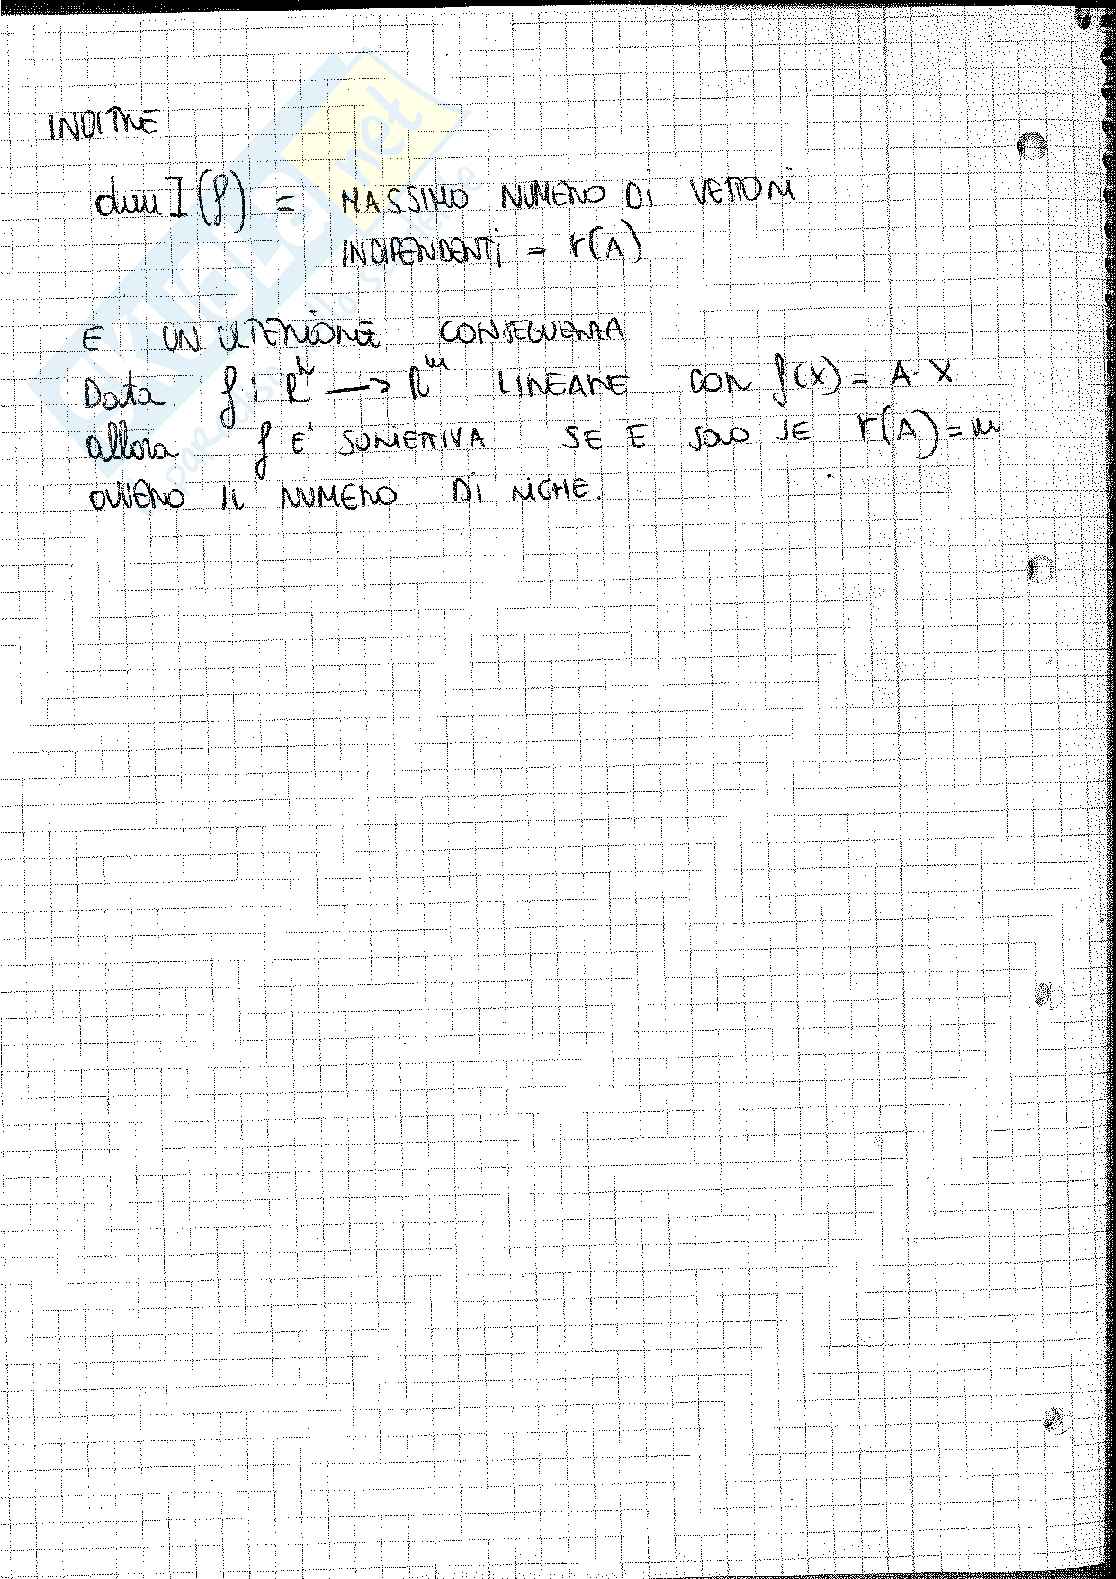 INOLTRE
dim I(f) = MASSIMO NUMERO DI VETTORI
INDIPENDENTI = r(A)
E UN ULTERIORE CONSEGUENZA
Data f : R^n → R^m LINEARE CON f(X) = A · X
allora f E' SURIETTIVA SE E SOLO SE r(A) = m
OVVERO IL NUMERO DI RIGHE.